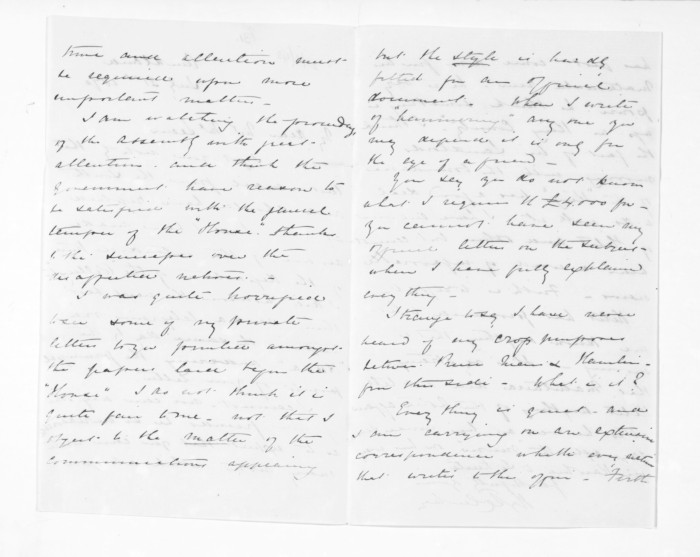 time and attention must
be required upon more
important matters -
I am watching the proceedgs
of the assembly with great
attention - and think the
Government have reason to
be satisfied with the general
temper of the "House" thanks
to the successes over the
disaffected natives. -
I was quite horrified
to see some of my private
letters to you printed amongst
the papers laid before the
"House" I do not think it is
quite fair to me - not that I
object to the matter of the
communications appearing
but the style is hardly
fitted for an official
document. When I write
of "hammering" any one you
may depend it is only for
the eye of a friend -
You say you do not know
what I require the £4000 for
You cannot have seen my
official letter on the subject
when I have fully explained
everything -
Strange to say I have never
heard of my crop purposes
between &
from this side - What is it?
Everything is quiet - and
I am carrying on an extensive
correspondence with every native
that writes to the office -